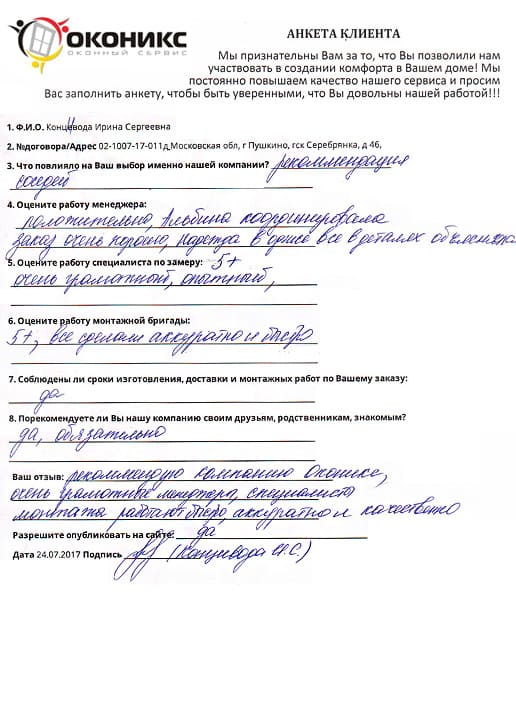 ОКОНИКС
ОКОННЫЙ СЕРВИС
АНКЕТА КЛИЕНТА
Мы признательны Вам за то, что Вы позволили нам
участвовать в создании комфорта в Вашем доме! Мы
постоянно повышаем качество нашего сервиса и просим
Вас заполнить анкету, чтобы быть уверенными, что Вы довольны нашей работой!!!
1. Ф.И.О. Концивода Ирина Сергеевна
2. №договора/Адрес 02-1007-17-011д Московская обл, г Пушкино, гск Серебрянка, д 46,
3. Что повлияло на Ваш выбор именно нашей компании? рекоммендация
соседей
4. Оцените работу менеджера:
положительно, Альбина координировала
заказ очень хорошо, Надежда в офисе все в деталях объяснила
5. Оцените работу специалиста по замеру: 5+
очень грамотный, опытный,
6. Оцените работу монтажной бригады:
5+, все сделали аккуратно и быстро
7. Соблюдены ли сроки изготовления, доставки и монтажных работ по Вашему заказу:
да
8. Порекомендуете ли Вы нашу компанию своим друзьям, родственникам, знакомым?
да, обязательно
Ваш отзыв: рекоммендую компанию Оконикс,
очень грамотные менеджера, специалисты
монтажа работают быстро, аккуратно и качественно
Разрешите опубликовать на сайте: да
Дата 24.07.2017 Подпись (Концивода И.С.)